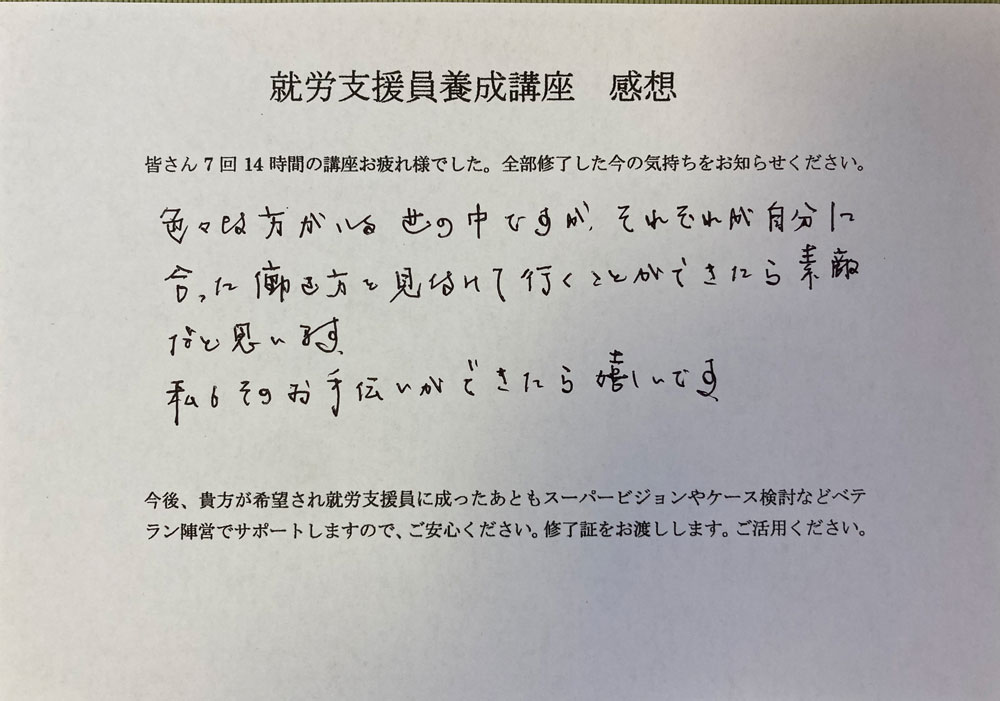 就労支援員養成講座　感想
皆さん7回14時間の講座お疲れ様でした。全部修了した今の気持ちをお知らせください。
色々な方がいる世の中ですが、それぞれが自分に
合った働き方を見付けて行くことができたら素敵
だと思います
私もそのお手伝いができたら嬉しいです
今後、貴方が希望され就労支援員に成ったあともスーパービジョンやケース検討などベテ
ラン陣営でサポートしますので、ご安心ください。修了証をお渡しします。ご活用ください。